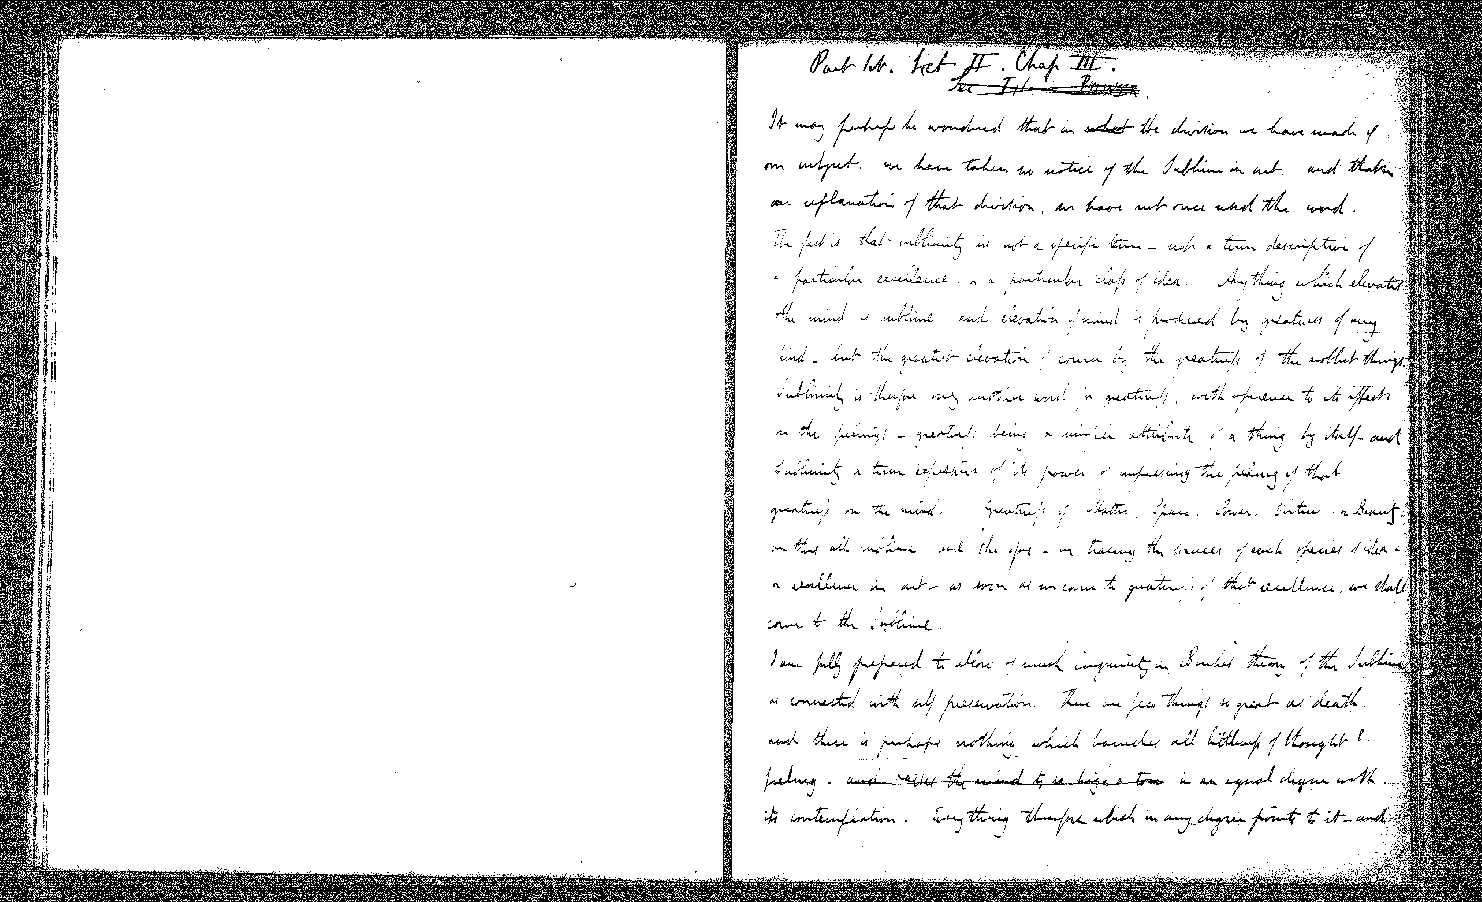 Part 1st. Sect II. Chap III.
Sec I. Power
It may perhaps be wondered that in what the division we have made of
our subject, we have taken no notice of the Sublime in art. and that in
our explanation of that division, we have not once used the word.
The fact is that sublimity is not a specific term – not a term descriptive of
a particular excellence, or a particular class of idea. Anything which elevates
the mind is sublime and elevation of mind is produced by greatness of any
kind – but the greatest elevation of course by the greatness of the noblest things.
Sublimity is therefore only another word for greatness, with reference to its effects
on the feelings – greatness being a simple attribute of a thing by itself – and
Sublimity a term expressive of its power of impressing the feeling of that
greatness on the mind. Greatness of Matter, Space, Power, Virtue, or Beauty
are thus all sublime and therefore – in tracing the sources of each species of idea
or excellence in art – as soon as we come to greatness of that excellence, we shall
come to the Sublime.
I am fully prepared to allow of much ingenuity in Burke's theory of the Sublime
as connected with self preservation. There are few things so great as death.
and there is perhaps nothing which banishes all littleness of thought &
feeling – and raises the mind to so high a tone in an equal degree with
its contemplation. Everything therefore which in any degree points to it – and